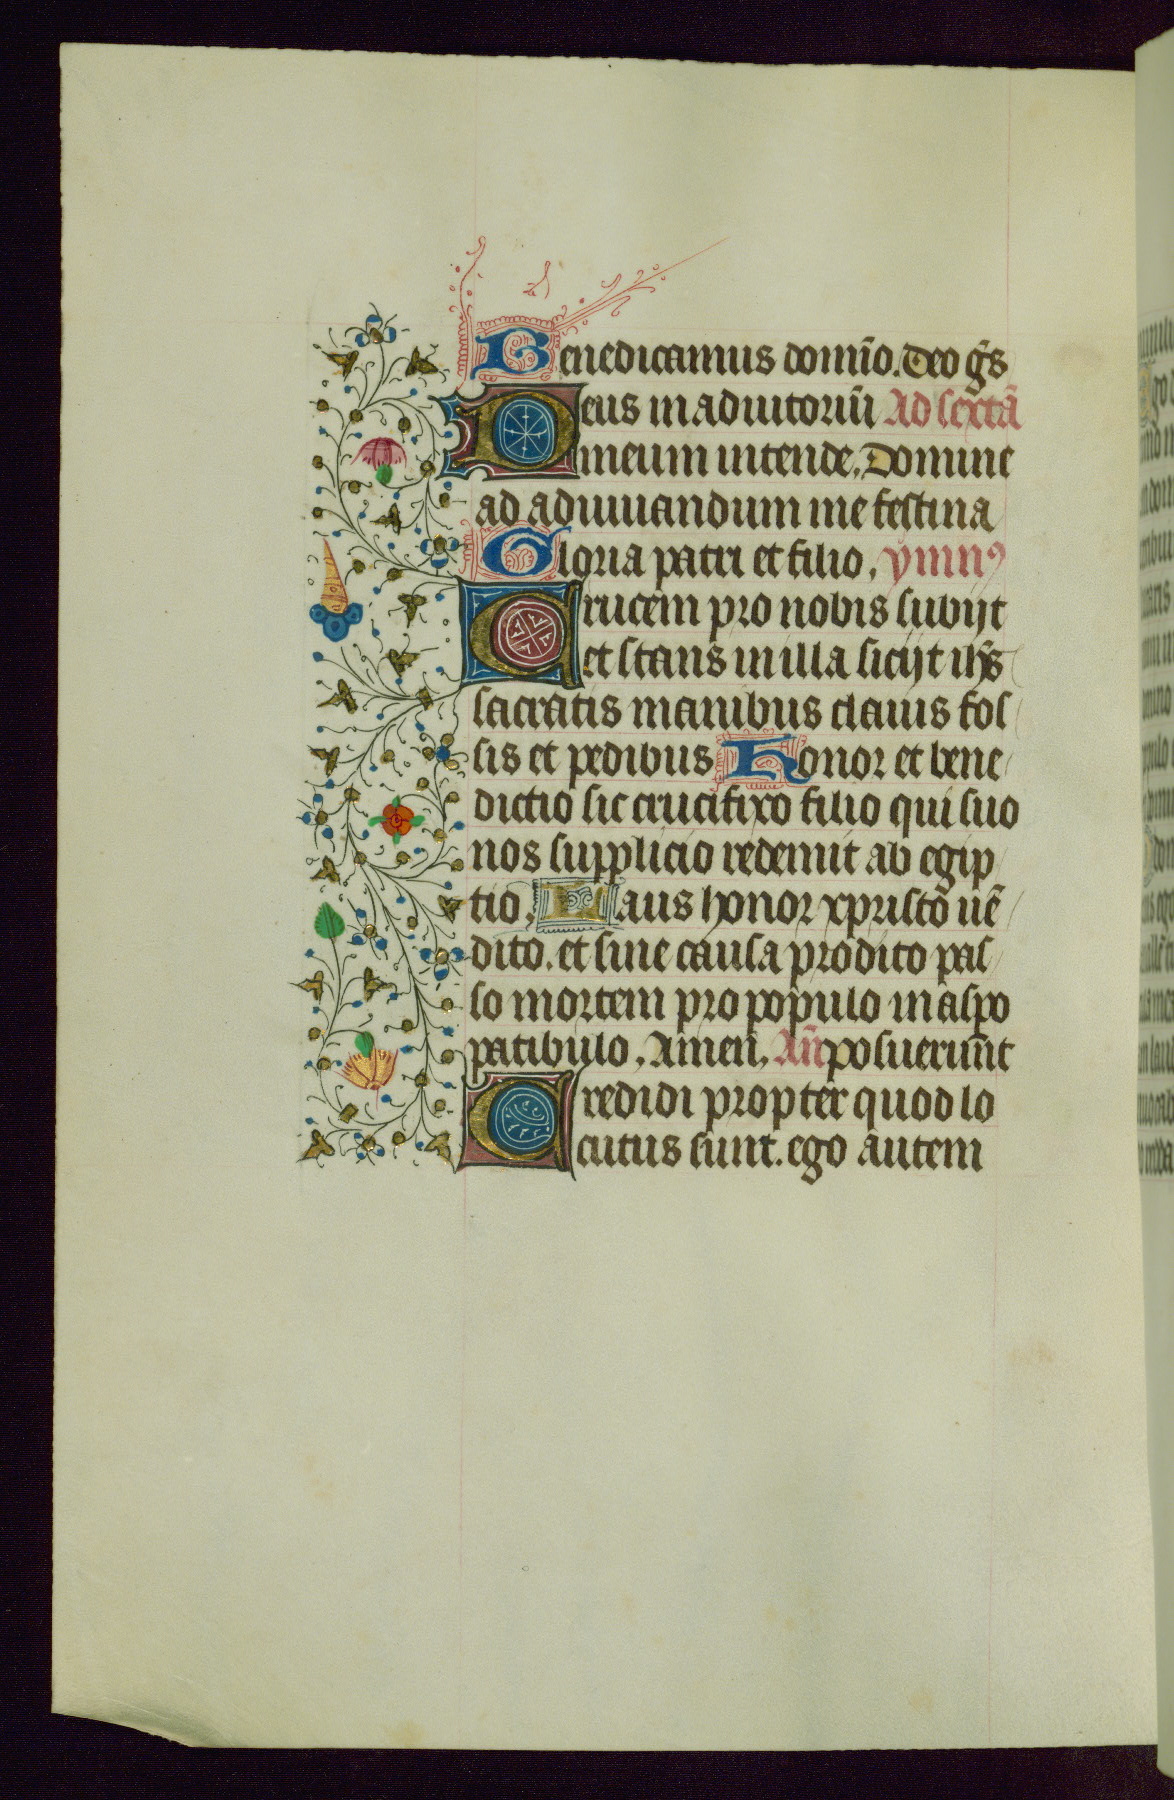 Benedicamus domīo. Deo gr̄s
Deus in adiutoriū Ad sextā
meum intende. Domine
ad adiuuandum me festina
Gloria patri et filio. ymnꝰ
Crucem pro nobis subijt
et stans in illa sicijt ih̄s
sacratis manibus clauis fos
sis et pedibus Honor et bene
dictio sit crucifixo filio qui suo
nos supplicio redemit ab egip
tio. Laus honor xpristo uē
dito. et sine causa prodito pas
so mortem pro populo in aspo
patibulo. Amen. An̄ posuerūnt
Credidi propter quod lo
cutus sunt. ego autem